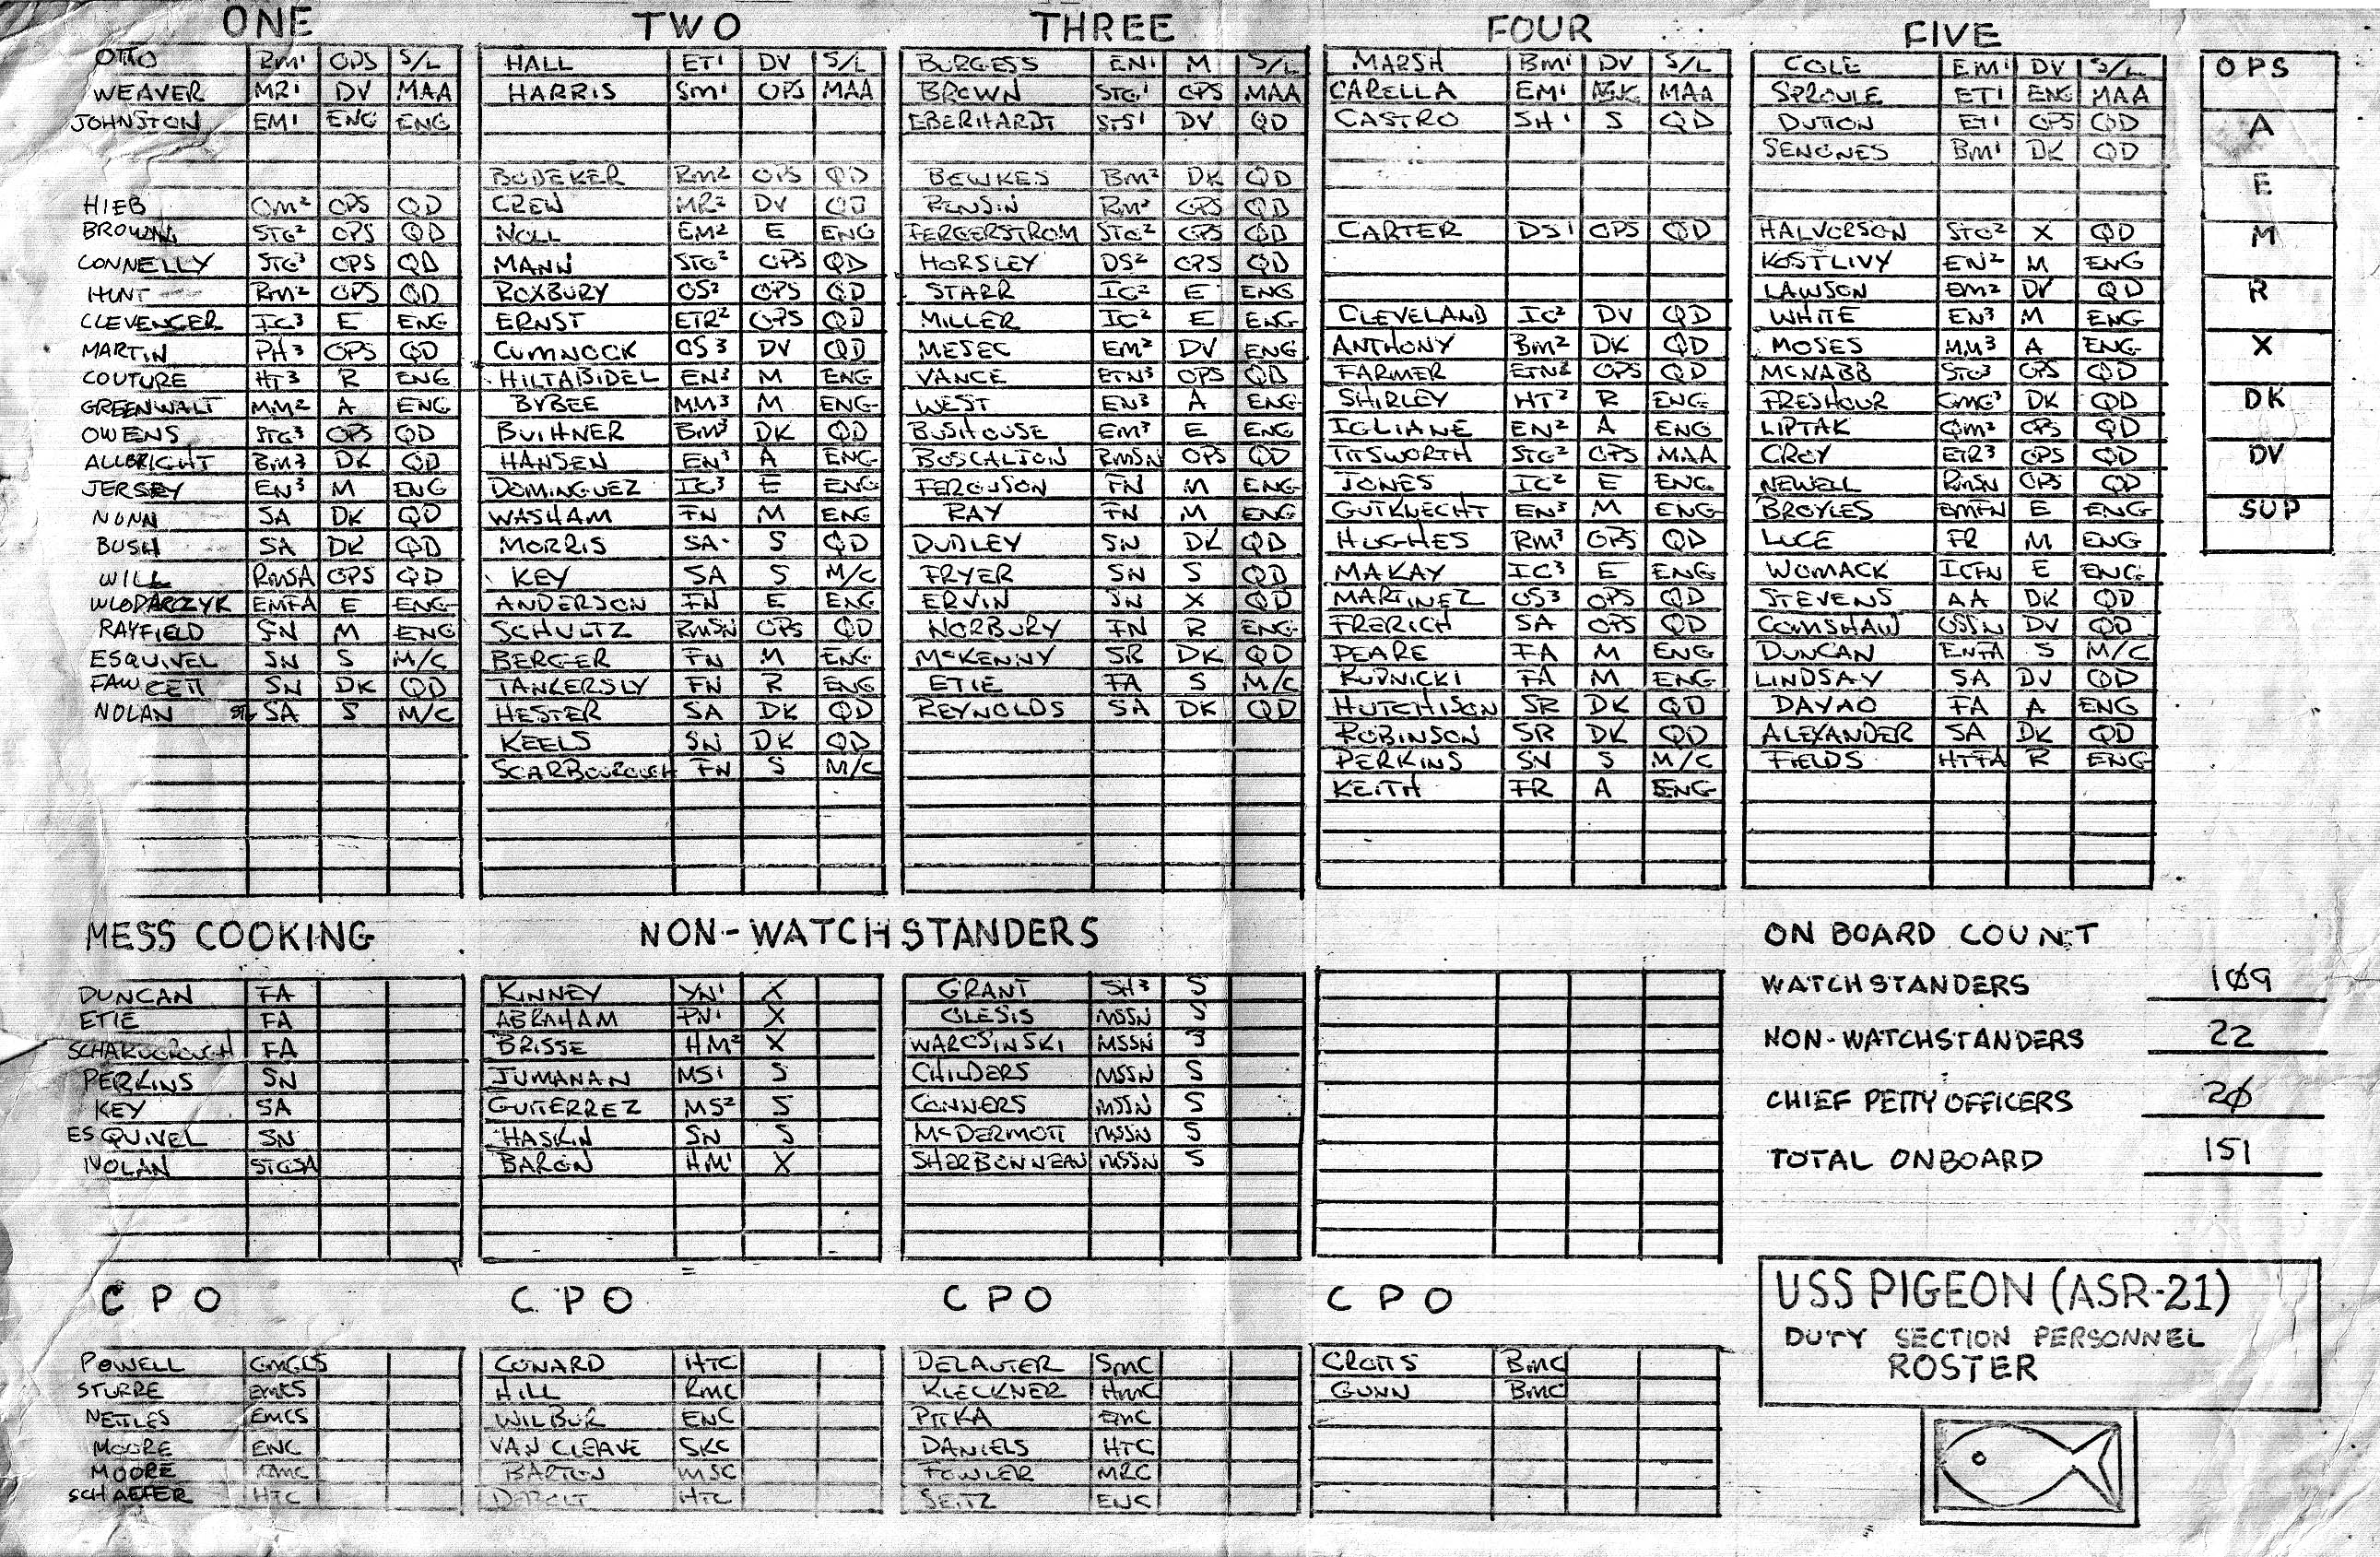 ONE
OTTO RM1 OPS S/L
WEAVER MR1 DV MAA
JOHNSTON EM1 ENG ENG
HIEB QM2 OPS QD
BROWN STG2 OPS QD
CONNELLY STG3 OPS QD
HUNT RM2 OPS QD
CLEVENGER IC3 E ENG
MARTIN PH3 OPS QD
COUTURE HT3 R ENG
GREENWALT MM2 A ENG
OWENS STG3 OPS QD
ALLBRIGHT BM3 DK QD
JERSEY EN3 M ENG
NUNN SA DK QD
BUSH SA DK QD
WILL RMSA OPS QD
WLODARCZYK EMFA E ENG
RAYFIELD FN M ENG
ESQUIVEL SN S M/C
FAWCETT SN DK QD
NOLAN SA S M/C
TWO
HALL ET1 DV S/L
HARRIS SM1 OPS MAA
BODEKER RM2 OPS QD
CREW MR2 DV QD
NOLL EM2 E ENG
MANN STG2 OPS QD
ROXBURY OS2 OPS QD
ERNST ETR2 OPS QD
CUMNOCK OS3 DV QD
HILTABIDEL EN3 M ENG
BYBEE MM3 M ENG
BUIHNER BM3 DK QD
HANSEN EN3 A ENG
DOMINGUEZ IC3 E ENG
WASHAM FN M ENG
MORRIS SA S QD
KEY SA S M/C
ANDERSON FN E ENG
SCHULTZ RMSN OPS QD
BERGER FN M ENG
TANKERSLY FN R ENG
HESTER SA DK QD
KEELS SN DK QD
SCARBOUROUGH FN S M/C
THREE
BURGESS EN1 M S/L
BROWN STG1 OPS MAA
EBERHARDT STS1 DV QD
BEWKES BM2 DK QD
BENSIN RM2 OPS QD
FERGERSTROM STG2 OPS QD
HORSLEY OS2 OPS QD
STARR IC2 E ENG
MILLER IC2 E ENG
MESEC EM2 DV ENG
VANCE ETN3 OPS QD
WEST EN3 A ENG
BUSHOUSE EM3 E ENG
BOSCALJON RMSN OPS QD
FERGUSON FN M ENG
RAY FN M ENG
DUDLEY SN DK QD
FRYER SN S QD
ERVIN SN X QD
NORBURY FN R ENG
MCKENNY SR DK QD
ETIE FA S M/C
REYNOLDS SA DK QD
FOUR
MARSH BM1 DV S/L
CARELLA EM1 MAA
CASTRO SH1 S QD
CARTER DS1 OPS QD
CLEVELAND IC2 DV QD
ANTHONY BM2 DK QD
FARMER ETN2 OPS QD
SHIRLEY HT2 R ENG
IGLIANE EN2 A ENG
TITSWORTH STG2 OPS MAA
JONES IC2 E ENG
GUTKNECHT EN3 M ENG
HUGHES RM3 OPS QD
MAKAY IC3 E ENG
MARTINEZ OS3 OPS QD
FRERICH SA OPS QD
PEARE FA M ENG
RUDNICKI FA M ENG
HUTCHISON SR DK QD
ROBINSON SR DK QD
PERKINS SN S M/C
KEITH FR A ENG
FIVE
COLE EM1 DV S/L
SPROULE ET1 ENG MAA
DUTTON ET1 OPS QD
SENONES BM1 DK QD
HALVORSON STG2 X QD
KOSTLIVY EN2 M ENG
LAWSON DV QD
WHITE EN3 M ENG
MOSES MM3 A ENG
MCNABB STG3 OPS QD
FRESHOUR GMG3 DK QD
LIPTAK QM2 OPS QD
CROY ETR3 OPS QD
NEWELL RMSN OPS QD
BROYLES EMFN E ENG
LUCE FR M ENG
WOMACK ICFN E ENG
STEVENS AA DK QD
COMSHAW OSSN DV QD
DUNCAN ENFA S M/C
LINDSAY SA DV QD
DAYAO FA A ENG
ALEXANDER SA DK QD
FIELDS HTFA R ENG
OPS
A
E
M
R
X
DK
DV
SUP
MESS COOKING
DUNCAN FA
ETIE FA
FA
PERKINS SN
KEY SA
ESQUIVEL SN
NOLAN STGSA
NON-WATCHSTANDERS
KINNEY YN1 X
ABRAHAM PN1 X
BRISSE HM2 X
JUMANAN MS1 S
GUTIERREZ MS2 S
HASKIN SN S
BARON HM1 X
GRANT SH3 S
OLESIS MSSN S
WARCSINSKI MSSN S
CHILDERS MSSN S
CONNERS MSSN S
McDERMOTT MSSN S
SHERBONNEAU MSSN S
ON BOARD COUNT
WATCHSTANDERS 109
NON-WATCHSTANDERS 22
CHIEF PETTY OFFICERS 20
TOTAL ONBOARD 151
CPO
POWELL GMGCS
STURRE EMCS
NETTLES EMCS
MOORE ENC
MOORE
SCHAEFER HTC
CPO
CONARD HTC
HILL RMC
WILBUR ENC
VAN CLEAVE SKC
BARTON MSC
DEBOLT HTC
CPO
DELAUTER SMC
KLECKNER HMC
PITKA EMC
DANIELS HTC
FOWLER MRC
SEITZ ENC
CPO
CROTTS BMC
GUNN BMC
USS PIGEON (ASR-21)
DUTY SECTION PERSONNEL
ROSTER